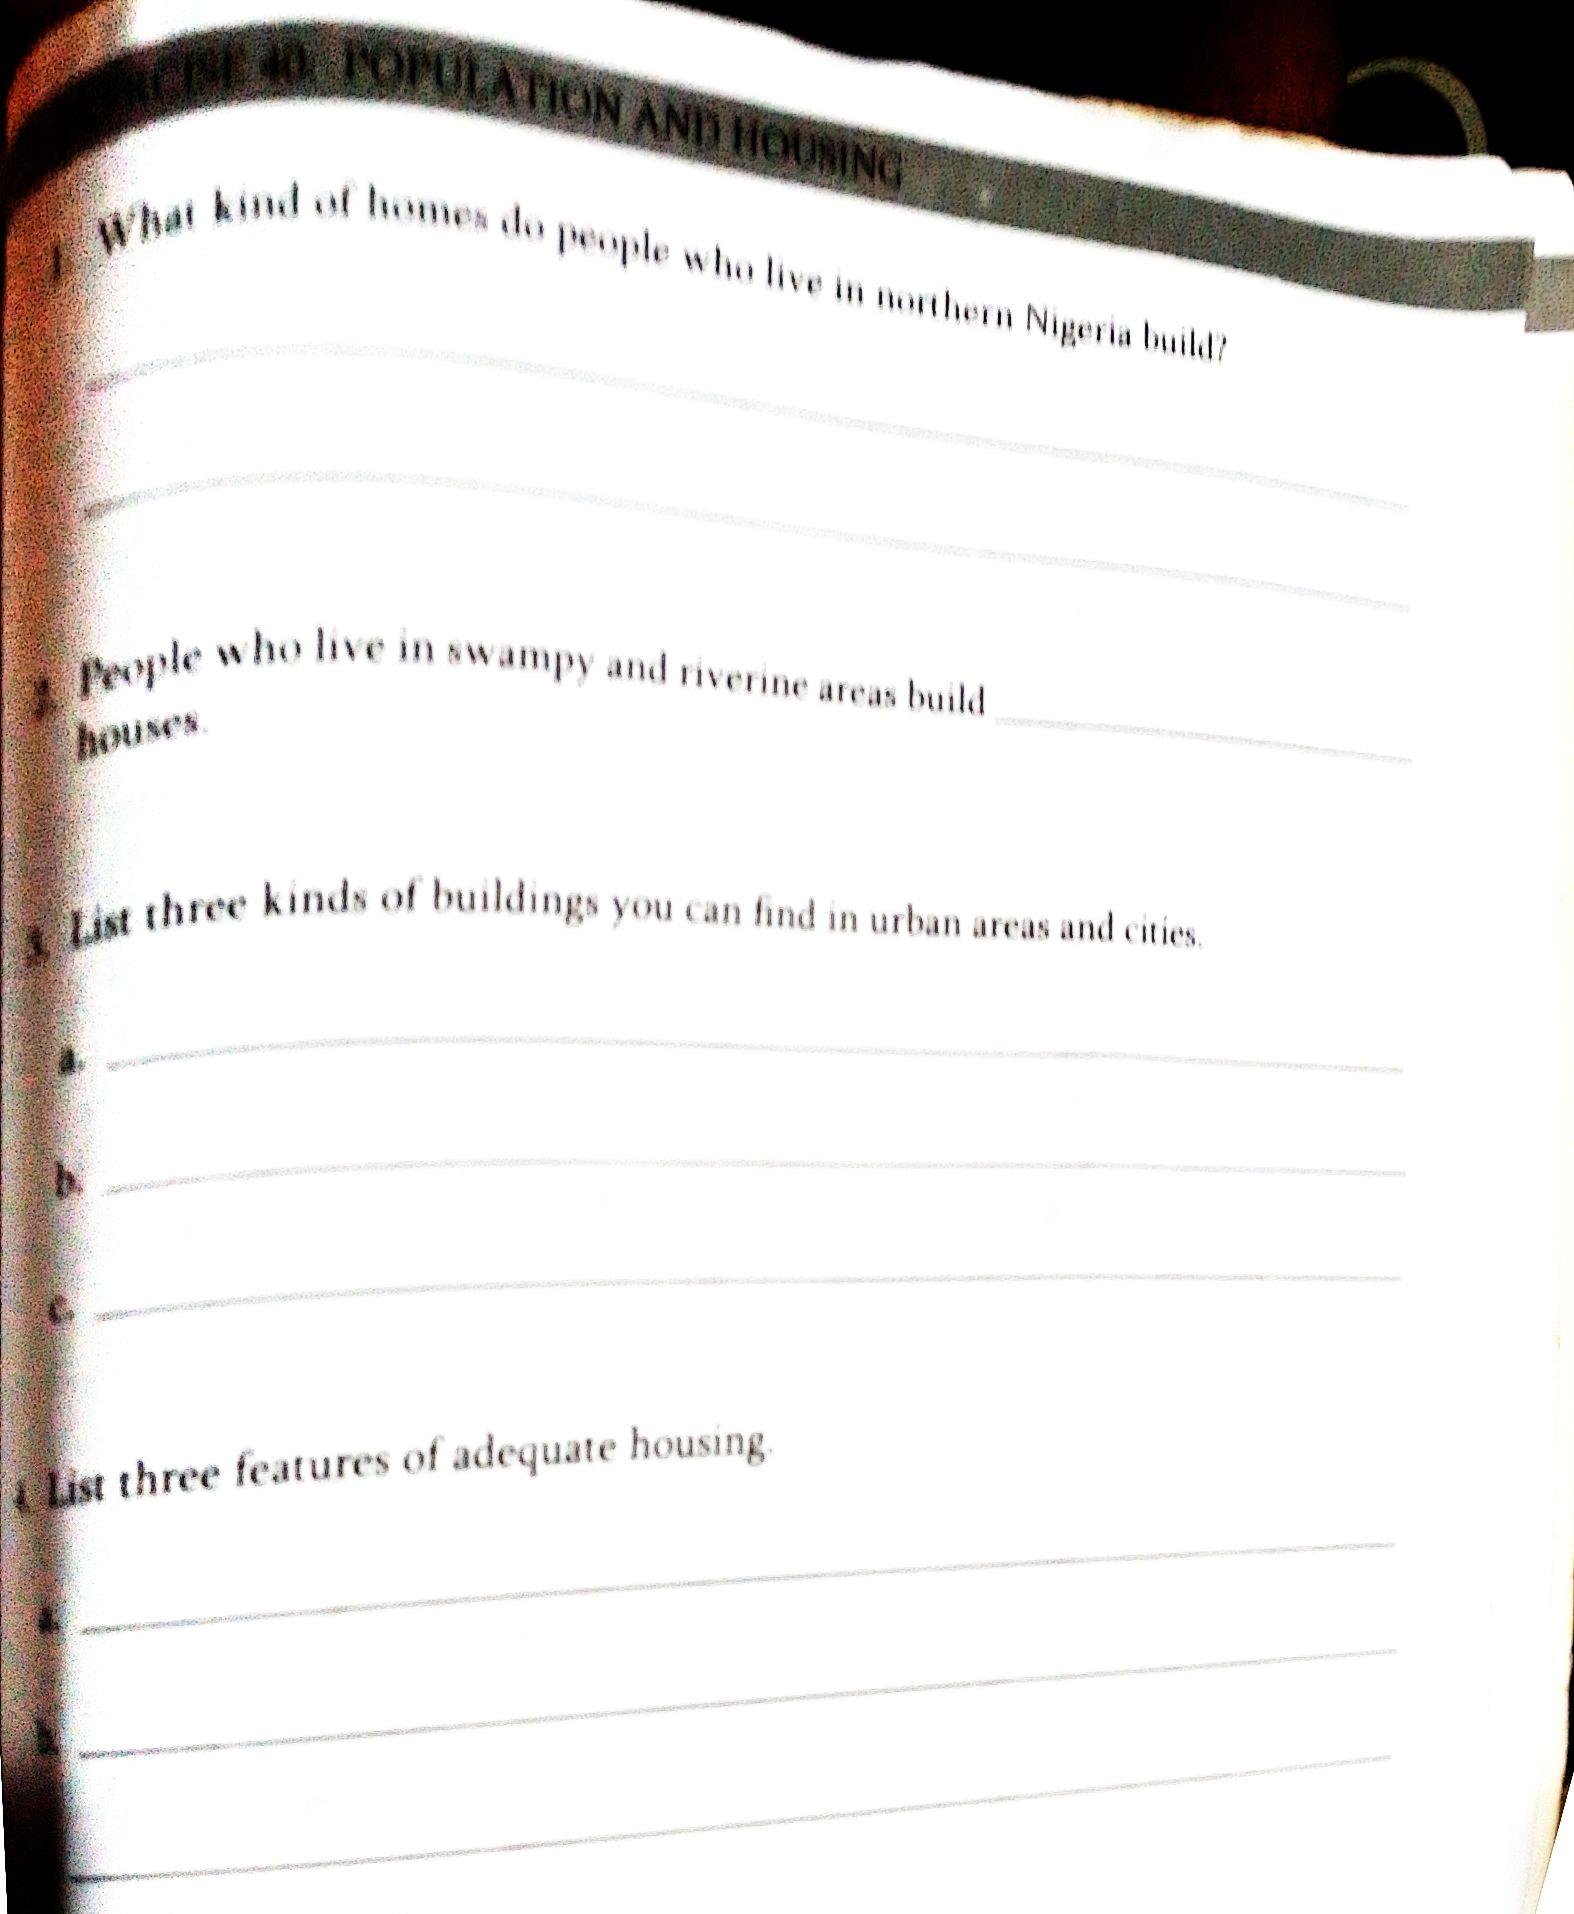 EXERCISE 40: POPULATION AND HOUSING
1. What kind of homes do people who live in northern Nigeria build?
2. People who live in swampy and riverine areas build
houses.
3. List three kinds of buildings you can find in urban areas and cities.
a.
b.
c.
4. List three features of adequate housing.
a.
b.